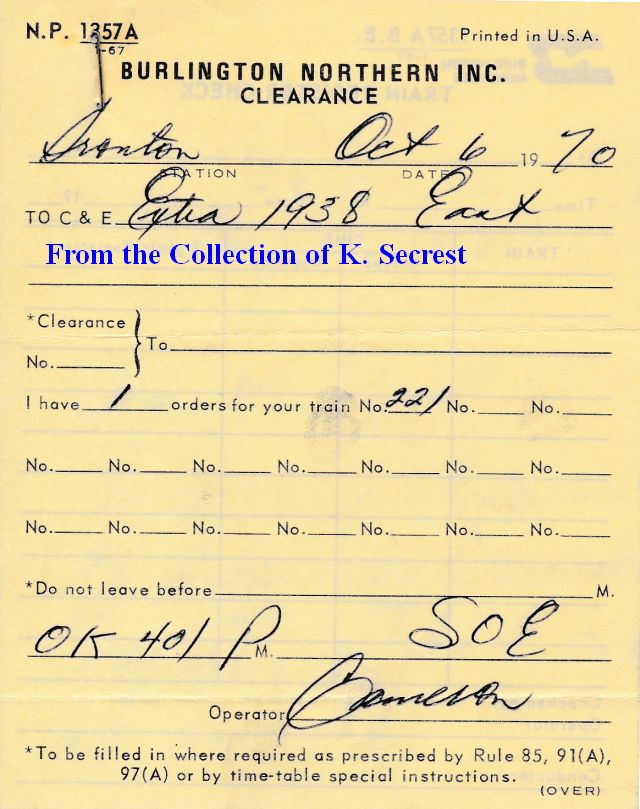 N.P. 1357A Printed in U.S.A.
-67
BURLINGTON NORTHERN INC.
CLEARANCE
Oct 6 1970
STATION DATE
TO C & E Extra 1938 East
From the Collection of K. Secrest
*Clearance
No. To
I have 1 orders for your train No. 221 No. No.
No. No. No. No. No. No. No.
No. No. No. No. No. No. No.
*Do not leave before M.
OK 401 P M. SOE
Operator Cameron
*To be filled in where required as prescribed by Rule 85, 91(A),
97(A) or by time-table special instructions.
(OVER)